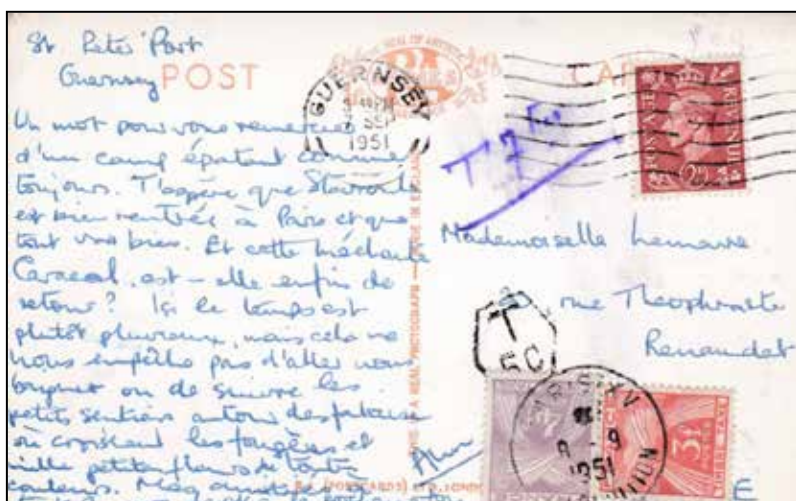 St Peter Port
Guernsey
POST
CAR
GUERNSEY
SE
1951
POSTAGE
REVENUE
T 7
Un mot pour vous remercier
d'un camp épatant comme
toujours. J'espère que
est bien rentrée à Paris et que
tout va bien. Et cette méchante
Caracal, est-elle enfin de
retour? Ici le temps est
plutôt pluvieux, mais cela ne
nous empêche pas d'aller nous
baigner ou de suivre les
petits sentiers autour des falaises
où croissent les fougères et
mille petites fleurs de toutes
couleurs.
THIS IS A REAL PHOTOGRAPH — MADE IN ENGLAND
(POSTCARDS) LTD., LONDON
Mademoiselle Lemaire
rue Théophraste
Renaudot
T
5C
PARIS XV
9
1951
3F
E